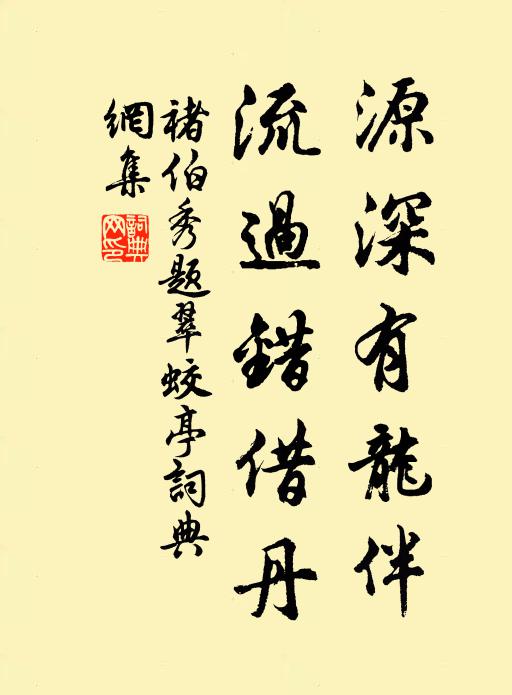 源深有龍伴
流過錯借丹
褚伯秀題翠蛟亭詞典
網集
詞典
網印